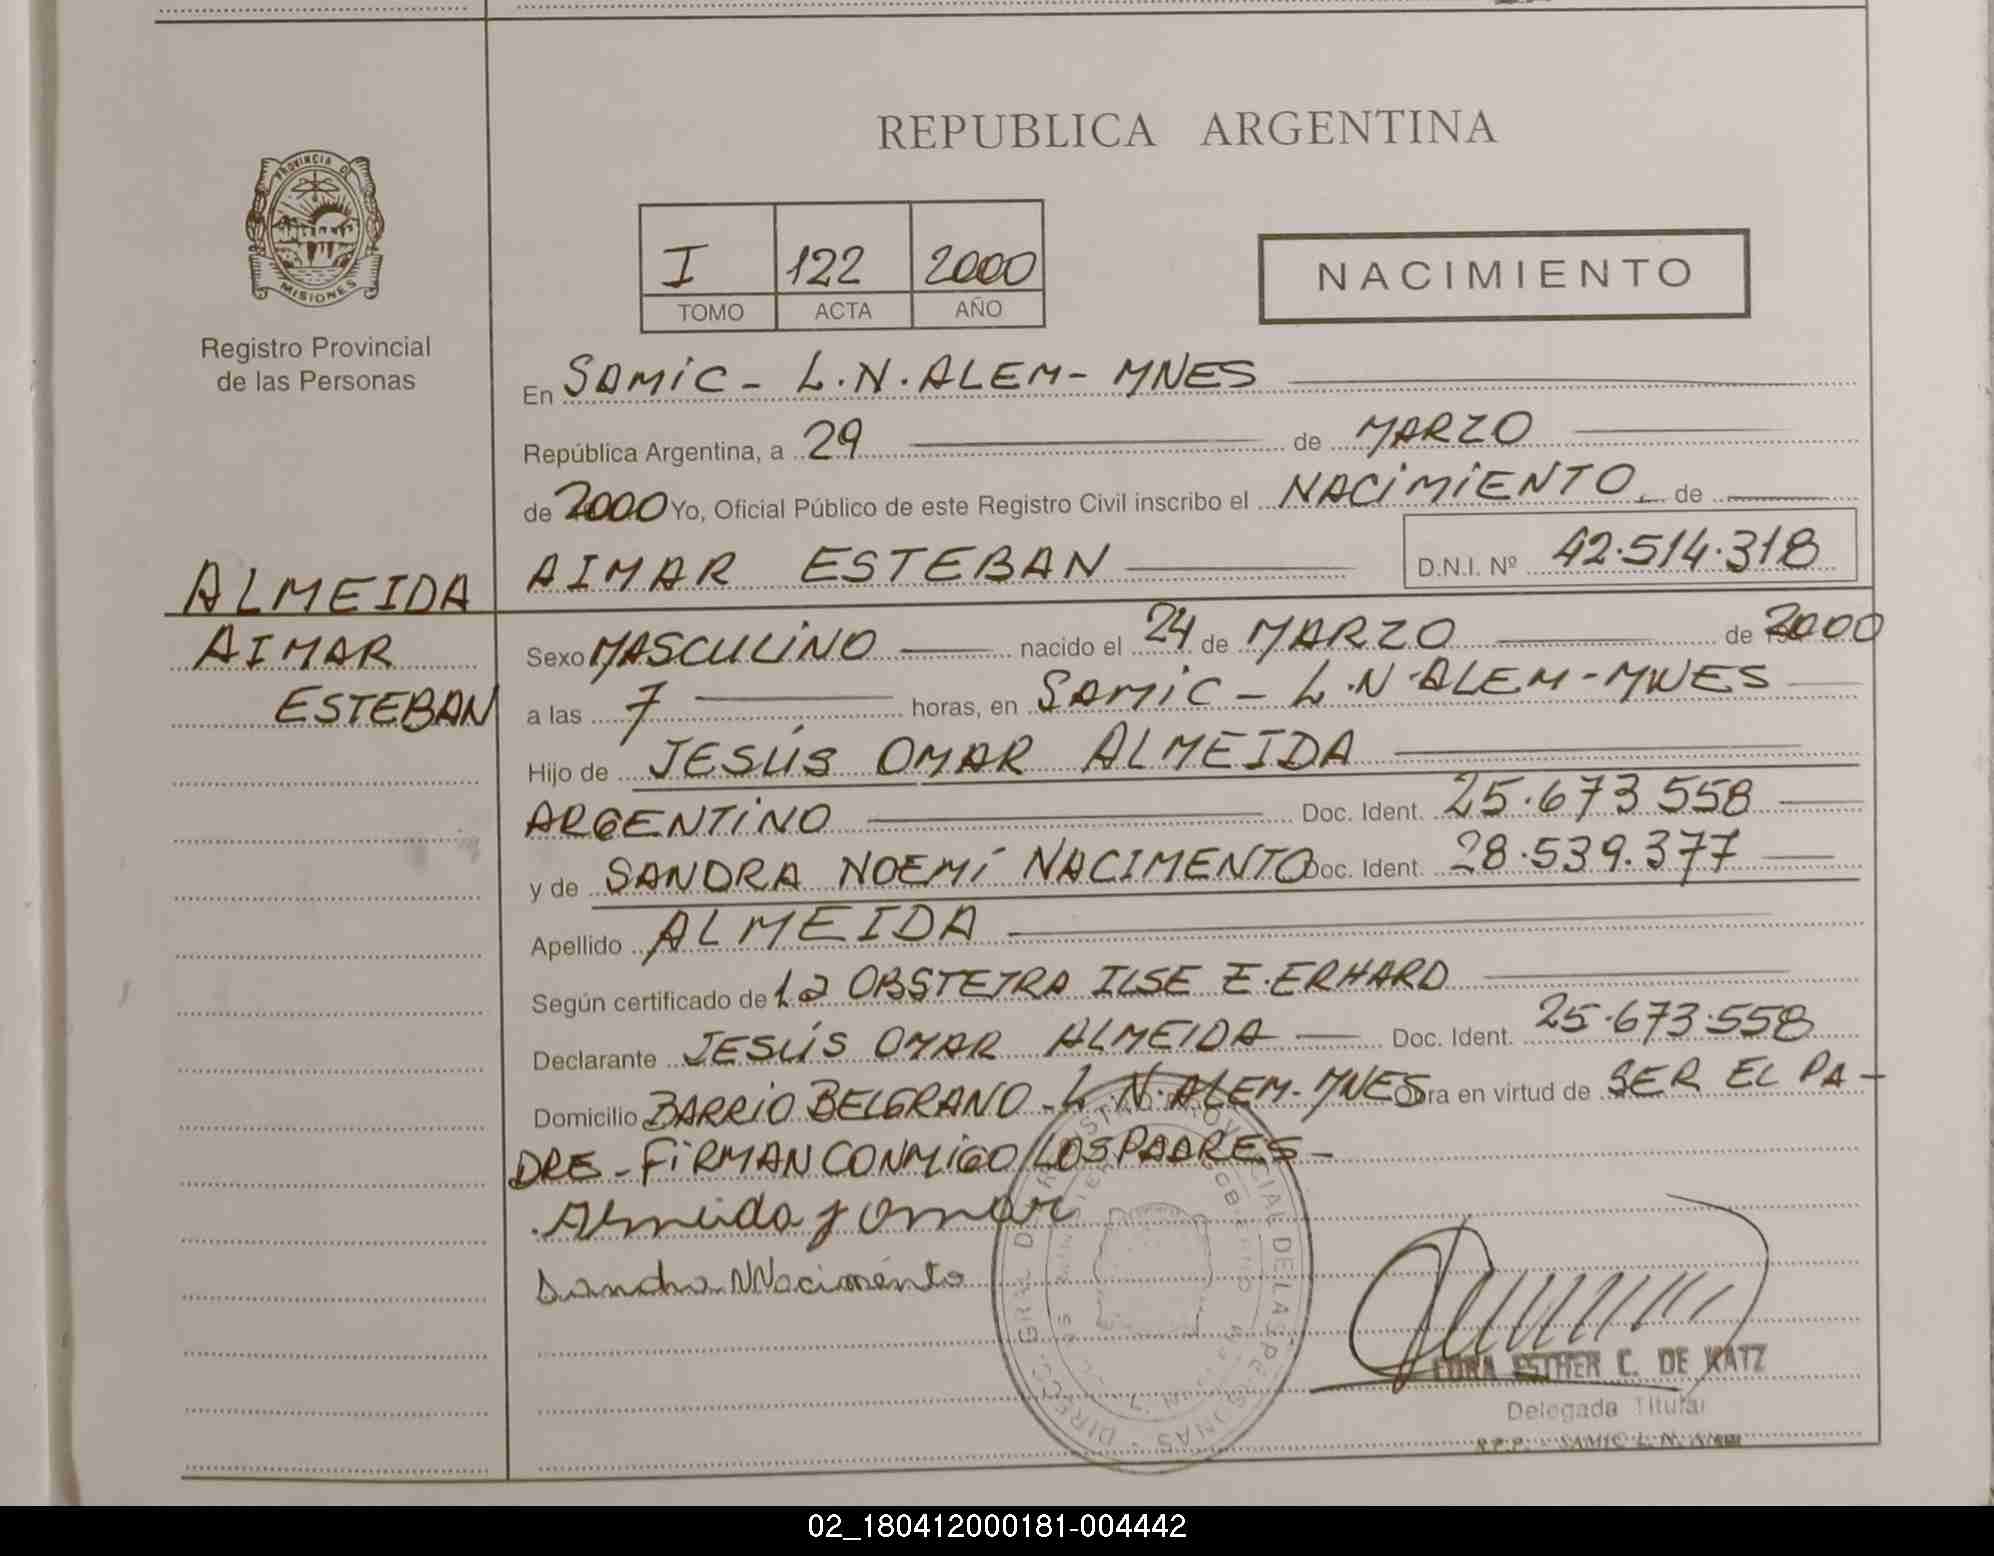 REPUBLICA ARGENTINA
PROVINCIA DE
MISIONES
Registro Provincial
de las Personas
I 122 2000
TOMO ACTA AÑO
NACIMIENTO
En SAMIC - L.N. ALEM - MNES
República Argentina, a 29 de MARZO
de 2000 Yo, Oficial Público de este Registro Civil inscribo el NACIMIENTO de
AIMAR ESTEBAN D.N.I. Nº 42.514.318
ALMEIDA
AIMAR
ESTEBAN
Sexo MASCULINO nacido el 24 de MARZO de 2000
a las 7 horas, en SAMIC - L.N. ALEM - MNES
Hijo de JESÚS OMAR ALMEIDA
ARGENTINO Doc. Ident. 25.673.558
y de SANDRA NOEMÍ NACIMENTO Doc. Ident. 28.539.377
Apellido ALMEIDA
Según certificado de La OBSTETRA ILSE E. ERHARD
Declarante JESÚS OMAR ALMEIDA Doc. Ident. 25.673.558
Domicilio BARRIO BELGRANO - L.N. ALEM - MNES Obra en virtud de SER EL PA-
DRE - FIRMAN CONMIGO LOS PADRES -
Almeida J Omar
Sandra N Nacimento
DIRECC. GRAL. DE REGISTRO PROVINCIAL DE LAS PERSONAS
ESTHER C. DE KATZ
Delegada Titular
R.P.P. - SAMIC L.N. Alem
02_180412000181-004442